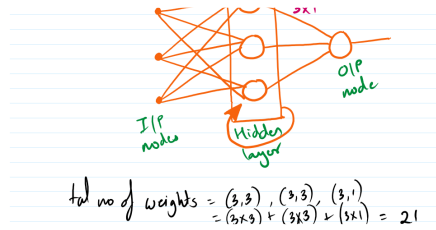 3x1
O|P
node
I|P
nodes
Hidden
layer
tal no of weights = (3,3) , (3,3), (3,1)
= (3x3) + (3x3) + (3x1) = 21